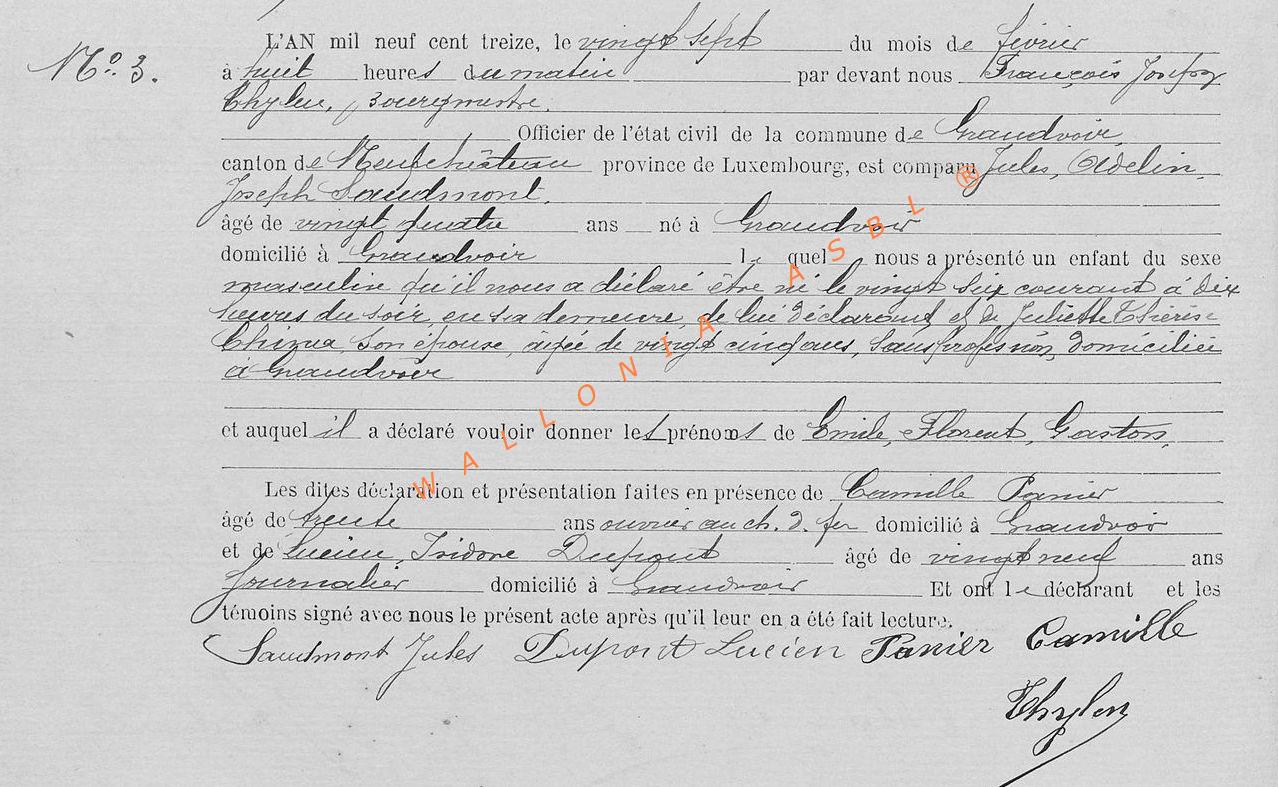 N° 3.
L'AN mil neuf cent treize, le vingt sept du mois de février
à huit heures du matin par devant nous François Joseph
Thylen, Bourgmestre,
Officier de l'état civil de la commune de Grandvoir,
canton de Neufchâteau province de Luxembourg, est comparu Jules, Adelin,
Joseph Saudmont,
âgé de vingt quatre ans né à Grandvoir
domicilié à Grandvoir lequel nous a présenté un enfant du sexe
masculin qu'il nous a déclaré être né le vingt six courant à dix
heures du soir, en sa demeure, de lui déclarant et de Juliette Thérèse
son épouse, âgée de vingt cinq ans, sans profession, domiciliée
à Grandvoir
et auquel il a déclaré vouloir donner les prénoms de Emile, Florent, Gaston,
Les dites déclaration et présentation faites en présence de Camille Panier
âgé de trente ans ouvrier au ch. d. fer domicilié à Grandvoir
et de Lucien, Isidore Dupont âgé de vingt neuf ans
journalier domicilié à Grandvoir Et ont le déclarant et les
témoins signé avec nous le présent acte après qu'il leur en a été fait lecture.
Saudmont Jules Dupont Lucien Panier Camille
Thylen
WALLONIA ASBL ®